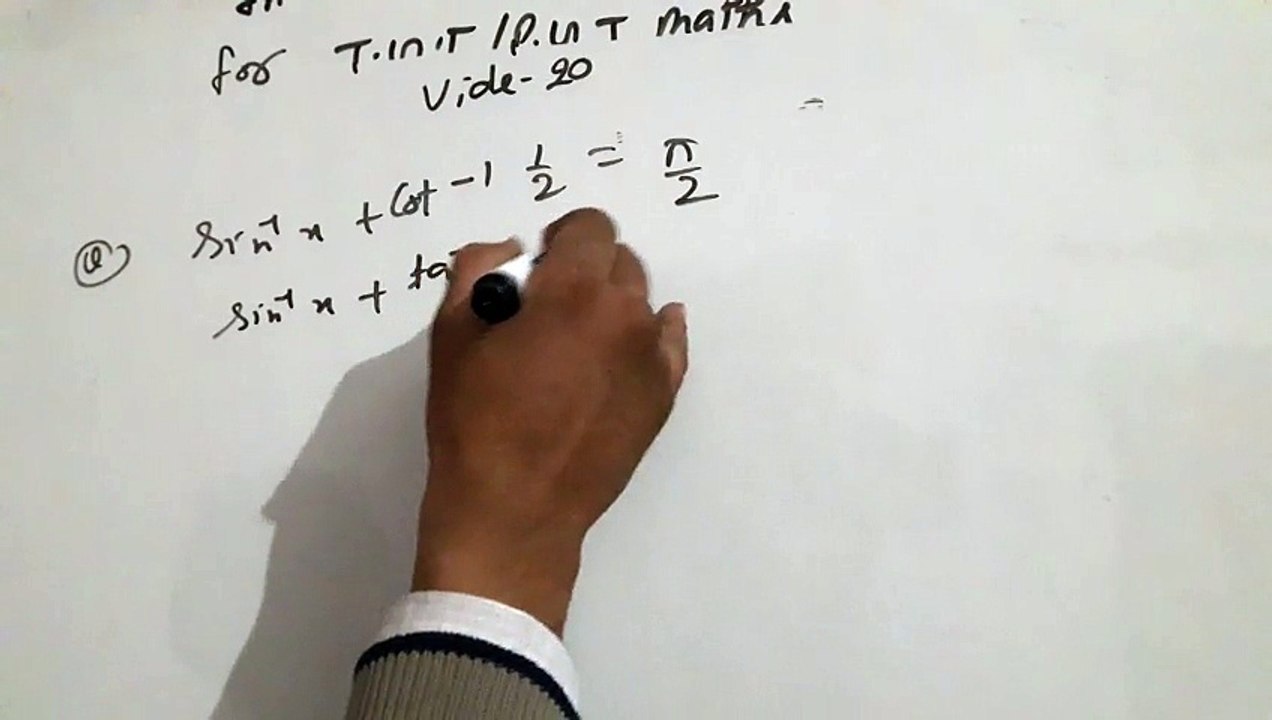 for T.G.T / P.G.T maths
Vide-20
Q) Sin⁻¹ x + Cot -1 1/2 = π/2
Sin⁻¹ x + ta